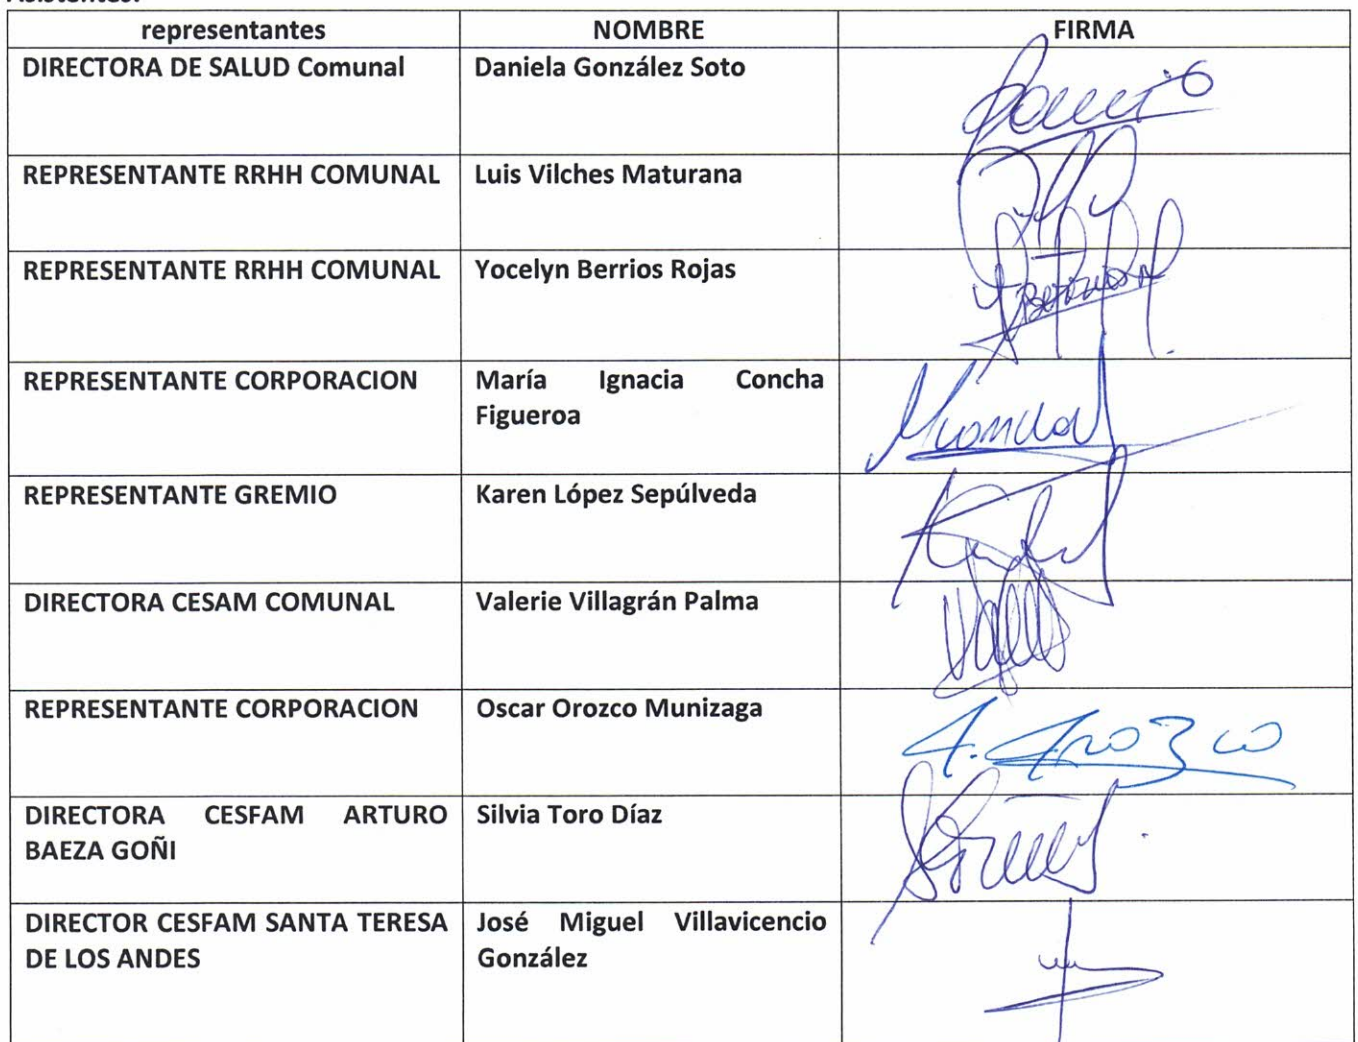 Asistentes:
representantes NOMBRE FIRMA
DIRECTORA DE SALUD Comunal Daniela González Soto
REPRESENTANTE RRHH COMUNAL Luis Vilches Maturana
REPRESENTANTE RRHH COMUNAL Yocelyn Berrios Rojas
REPRESENTANTE CORPORACION María Ignacia Concha
Figueroa
REPRESENTANTE GREMIO Karen López Sepúlveda
DIRECTORA CESAM COMUNAL Valerie Villagrán Palma
REPRESENTANTE CORPORACION Oscar Orozco Munizaga
DIRECTORA CESFAM ARTURO Silvia Toro Díaz
BAEZA GOÑI
DIRECTOR CESFAM SANTA TERESA José Miguel Villavicencio
DE LOS ANDES González